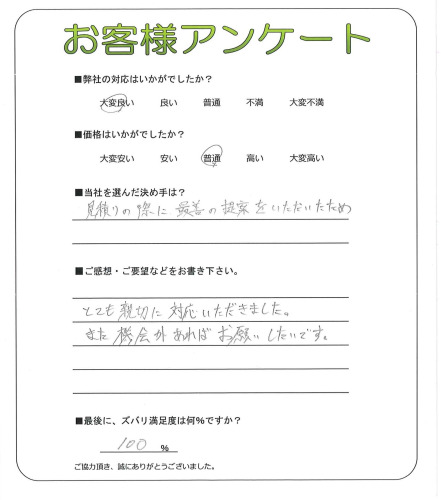 お客様アンケート
■弊社の対応はいかがでしたか？
大変良い 良い 普通 不満 大変不満
■価格はいかがでしたか？
大変安い 安い 普通 高い 大変高い
■当社を選んだ決め手は？
見積りの際に最善の提案をいただいたため
■ご感想・ご要望などをお書き下さい。
とても親切に対応いただきました。
また機会があればお願いしたいです。
■最後に、ズバリ満足度は何%ですか？
100 %
ご協力頂き、誠にありがとうございました。